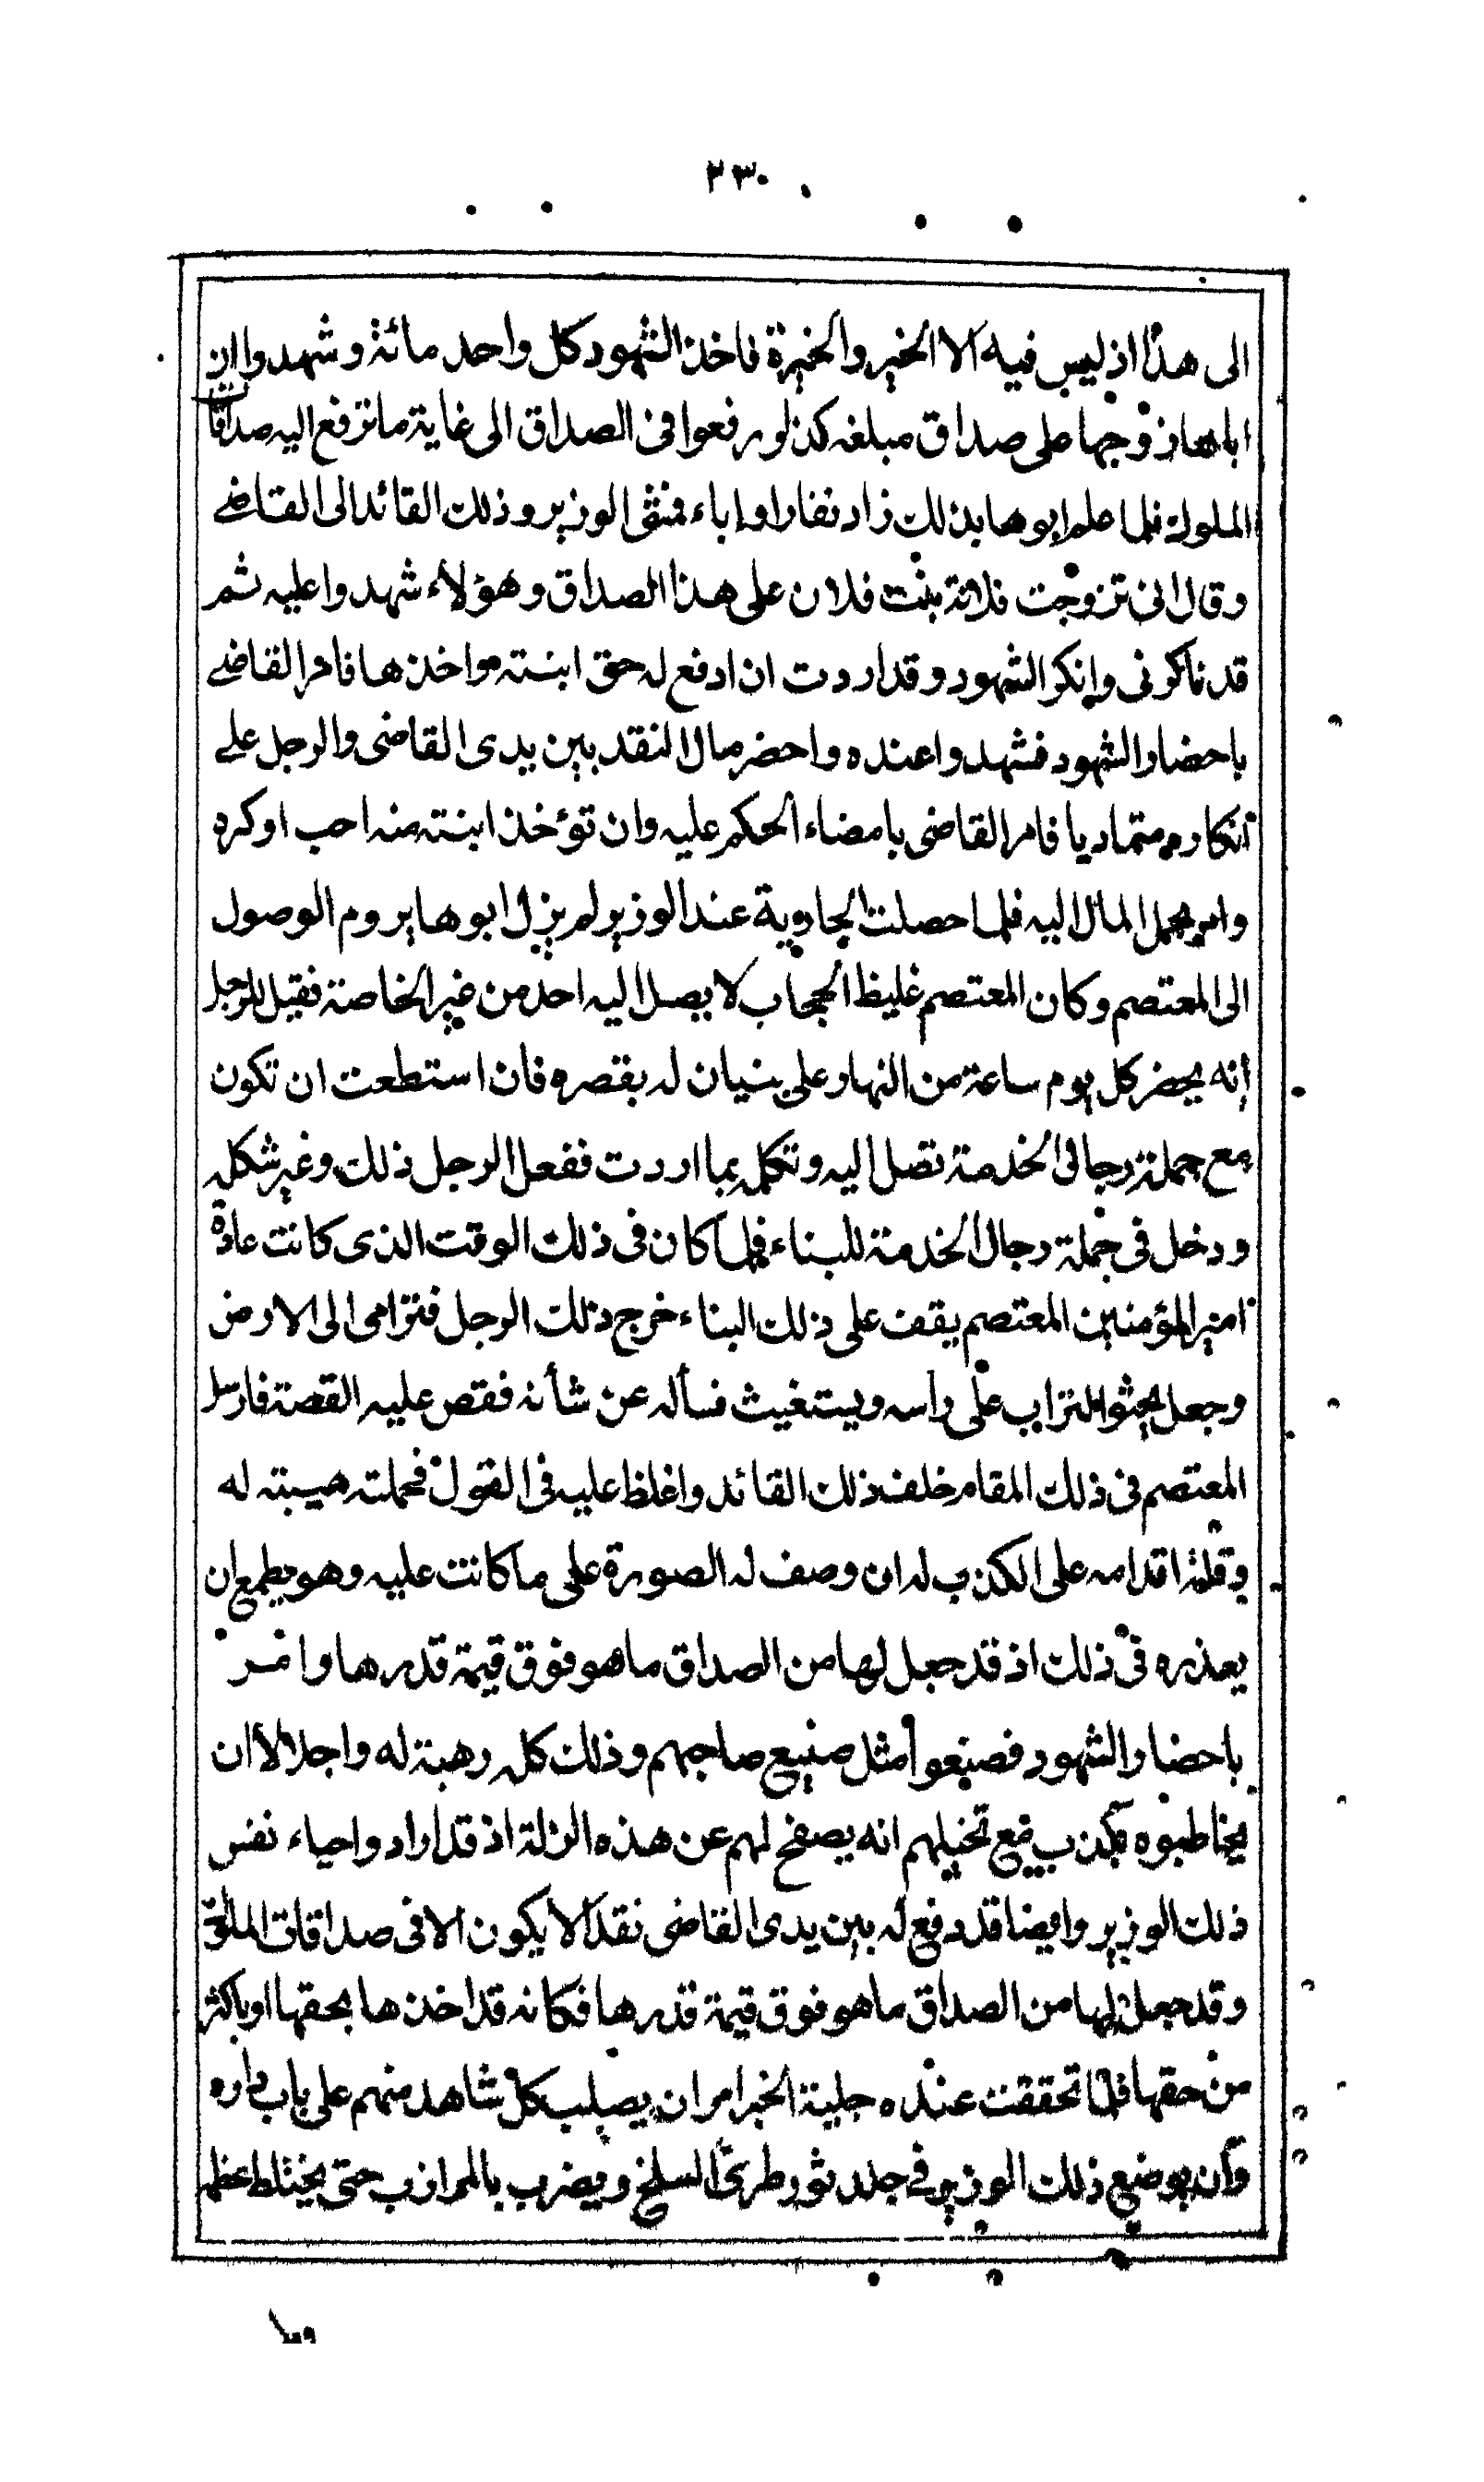 ٢٣٠
الى هذا اذ ليس فيه الا الخير والخيرة فاخذ الشهود كل واحد مائة وشهدوا ان
اباها زوجها على صداق مبلغه كذا ورفعوا فى الصداق الى غاية ما ترفع اليه صداقات
الملوك فلما علم ابوها بذلك زاد نفارا واباء فمشى الوزير وذلك القائد الى القاضى
وقال انى تزوجت فلانة بنت فلان على هذا الصداق وهؤلاء شهدوا عليه ثم
قد ناكرونى وانكر الشهود وقد اردت ان ادفع له حق ابنته واخذها فامر القاضى
باحضار الشهود فشهدوا عنده واحضر مال النقد بين يدى القاضى والرجل على
انكاره متماديا فامر القاضى بامضاء الحكم عليه وان تؤخذ ابنته منه احب او كره
وامر بحمل المال اليه فلما حصلت الجاوية عند الوزير لم يزل ابوها يروم الوصول
الى المعتصم وكان المعتصم غليظ الحجاب لا يصل اليه احد من غير الخاصة فقيل للرجل
انه يحضر كل يوم ساعة من النهار على بنيان له بقصره فان استطعت ان تكون
مع جملة رجال الخدمة تصل اليه وتكلمه بما اردت ففعل الرجل ذلك وغير شكله
ودخل فى جملة رجال الخدمة للبناء فلما كان فى ذلك الوقت الذى كانت عادة
امير المؤمنين المعتصم يقف على ذلك البناء خرج ذلك الرجل فترامى الى الارض
وجعل يحثو التراب على رأسه ويستغيث فسأله عن شأنه فقص عليه القصة فارسل
المعتصم فى ذلك المقام خلف ذلك القائد واغلظ عليه فى القول فحملته هيبته له
وقلة اقدامه على الكذب له ان وصف له الصورة على ما كانت عليه وهو يطمع ان
يعذره فى ذلك اذ قد جعل لها من الصداق ما هو فوق قيمة قدرها وامر
باحضار الشهود فصنعوا مثل صنيع صاحبهم وذلك كله رهبة له واجلالا ان
يخاطبوه بكذب مع تخيلهم انه يصفح لهم عن هذه الزلة اذ قد ارادوا حياء نفس
ذلك الوزير وايضا قد دفع له بين يدى القاضى نقدا لا يكون الا فى صداقات الملوك
وقد جعل لها من الصداق ما هو فوق قيمة قدرها فكانه قد اخذها بحقها او باكثر
من حقها فلما تحققت عنده جلية الخبر امر ان يصلب كل شاهد منهم على باب داره
وان يوضع ذلك الوزير فى جلد ثور طرى السلخ ويضرب بالمرازب حتى يختلط عظمه